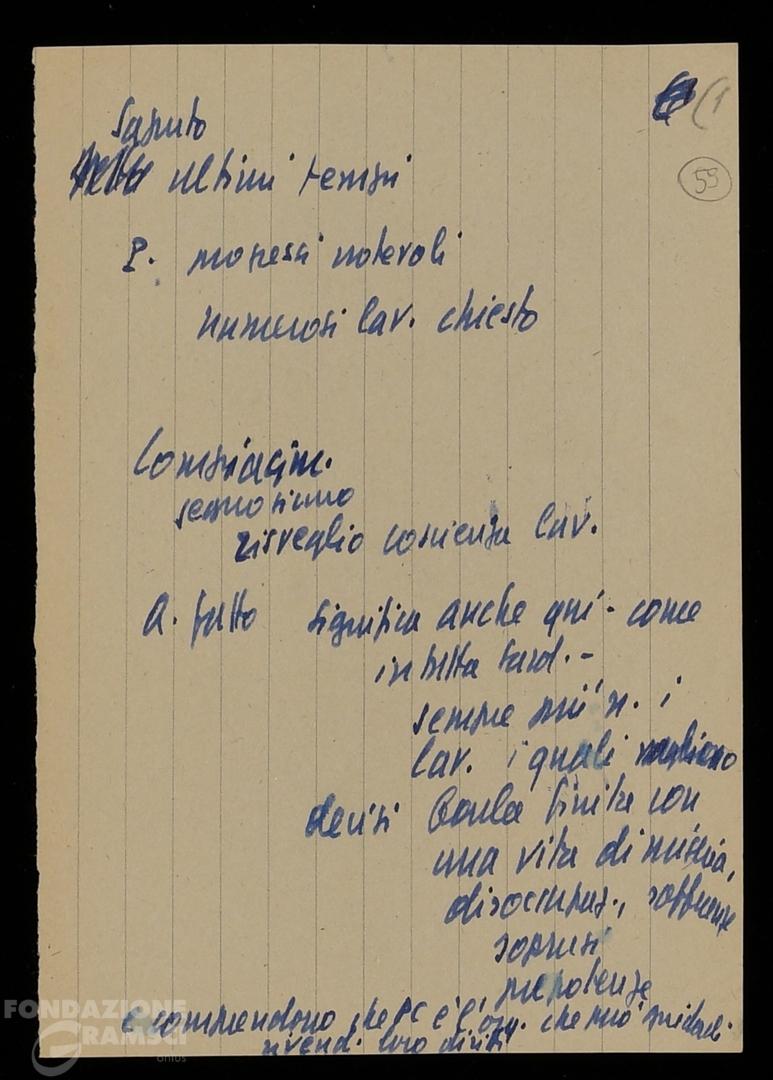 (1
Saputo
ultimi tempi
59
P. progressi notevoli
numerosi lav. chiesto
Compiacim.
segno sicuro
risveglio coscienza lav.
A. fatto significa anche qui - come
in tutta Sard. -
sempre più n. i
lav. i quali vogliono
decisi farla finita con
una vita di miseria,
disoccupaz., sofferenze
soprusi
prepotenze
e comprendono che PC è l'org. che può guidarli
rivend. loro diritti
FONDAZIONE
GRAMSCI
onlus